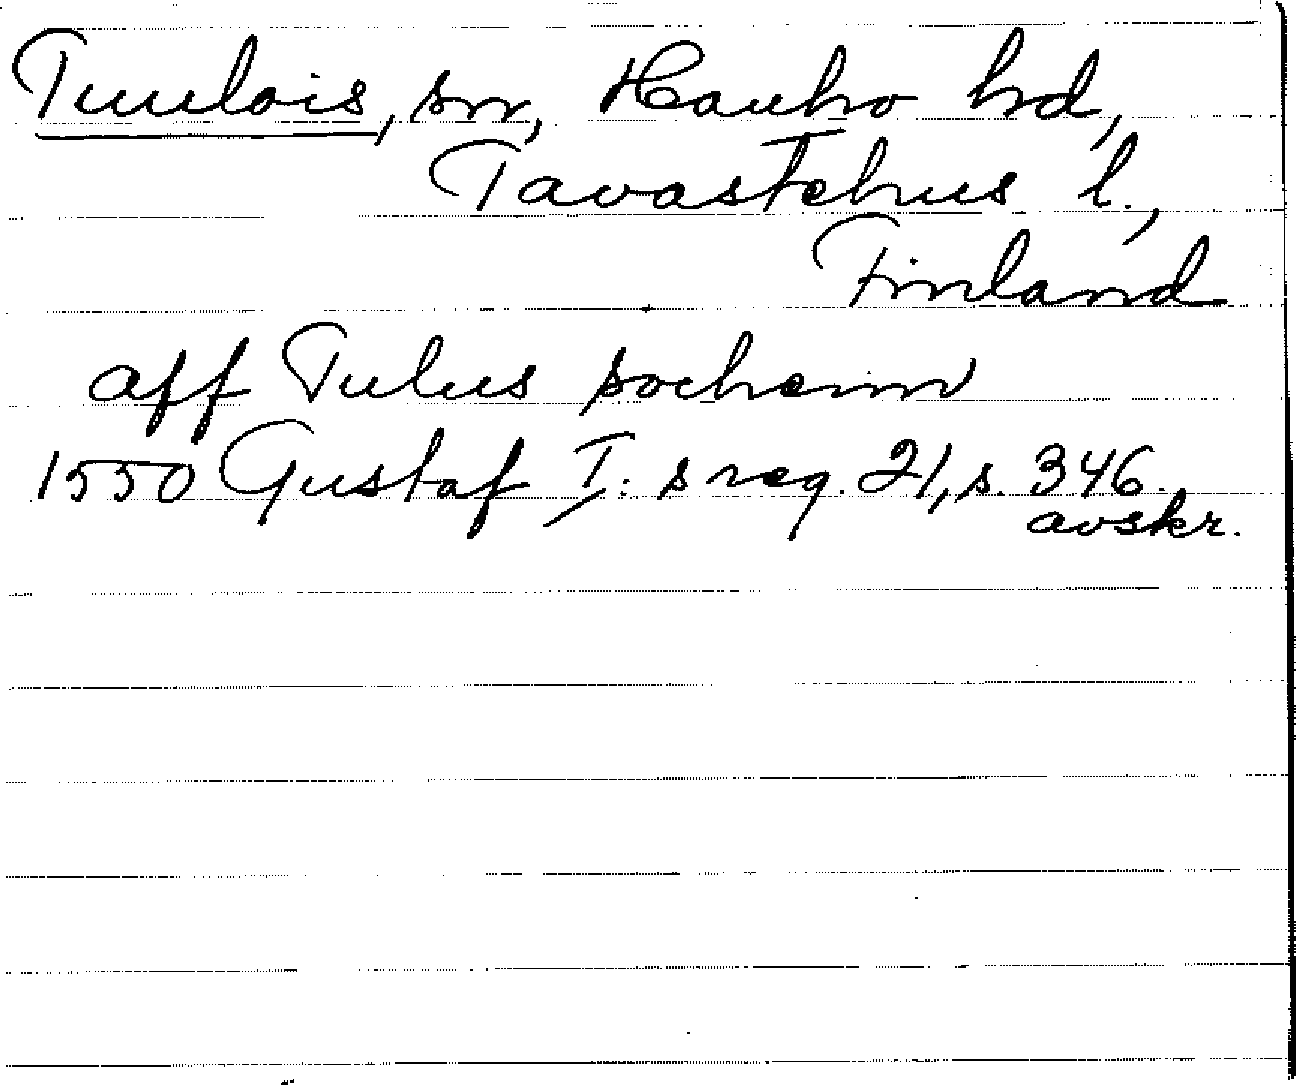 Tuulois, sn, Hauho hd,
Tavastehus l.,
Finland
aff Tulus sochenn
1550 Gustaf I:s reg. 21, s. 346.
avskr.